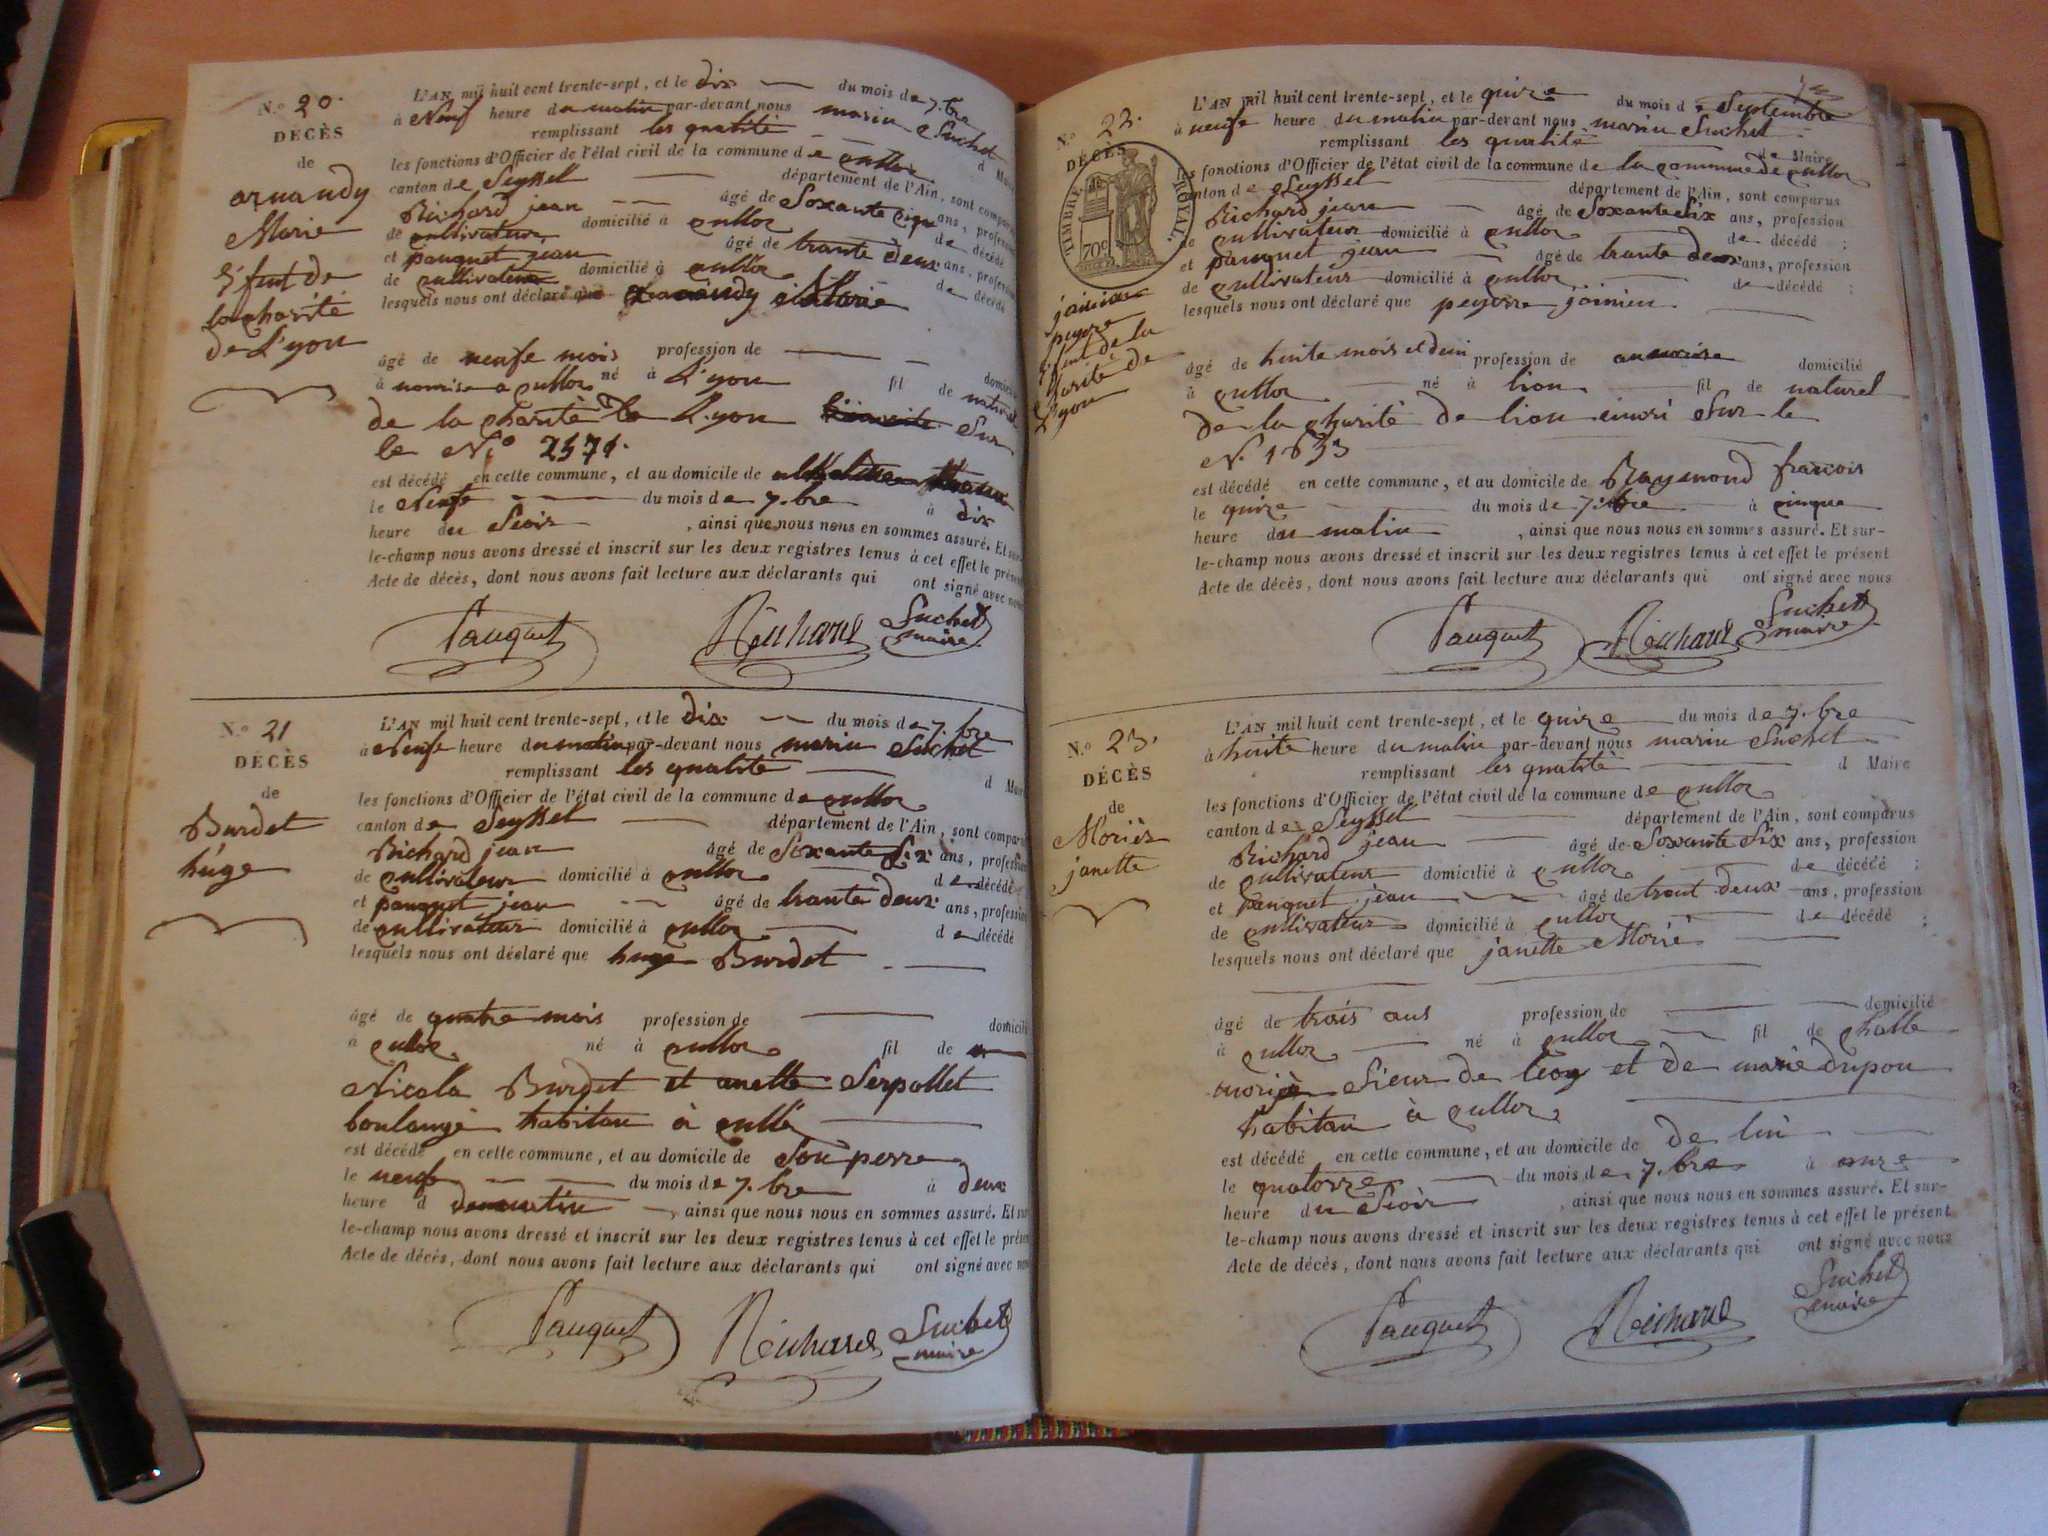 N.° 20.
DÉCÈS
de
arnandy
Marie
de L'yon
L'AN mil huit cent trente-sept, et le dix du mois de 7.bre
à Neuf heure du matin par-devant nous marin Suchet
remplissant les qualité d Maire
les fonctions d'Officier de l'état civil de la commune de cullor
canton de Seyssel département de l'Ain, sont compar
Richard jean âgé de Soxante ans, profession
de cultivateur domicilié à cullor de décédé
et pauquet jean âgé de trante deux ans, profession
de cultivateur domicilié à cullor de décédé
lesquels nous ont déclaré que Marie
âgé de neufe mois profession de domicilié
à cullor né à L'yon fil de naturel
de la charité de L'yon Sur
le N.° 2571.
est décédé en cette commune, et au domicile de
le Neufe du mois de 7.bre à dix
heure du Soir, ainsi que nous nous en sommes assuré. Et sur
le-champ nous avons dressé et inscrit sur les deux registres tenus à cet effet le présent
Acte de décès, dont nous avons fait lecture aux déclarants qui ont signé avec nous
Pauquet Richard Suchet
maire
N.° 21
DÉCÈS
de
Burdet
huge
L'AN mil huit cent trente-sept, et le dix du mois de 7.bre
à Neufe heure du matin par-devant nous marin Suchet
remplissant les qualité d Maire
les fonctions d'Officier de l'état civil de la commune de cullor
canton de Seyssel département de l'Ain, sont comparus
Richard jean âgé de Soxante Six ans, profession
de cultivateur domicilié à cullor de décédé
et pauquet jean âgé de trante deux ans, profession
de cultivateur domicilié à cullor de décédé
lesquels nous ont déclaré que huge Burdet
âgé de quatre mois profession de domicilié
à culor né à cullor fil de
Nicola Burdet et anette Serpollet
boulangé habitan à cullo
est décédé en cette commune, et au domicile de Son perre
le neufe du mois de 7.bre à deux
heure d du matin, ainsi que nous nous en sommes assuré. Et sur
le-champ nous avons dressé et inscrit sur les deux registres tenus à cet effet le présent
Acte de décès, dont nous avons fait lecture aux déclarants qui ont signé avec nous
Pauquet Richard Suchet
maire
N.° 22.
DÉCÈS
TIMBRE ROYAL.
70c
joinien
peyrre
de la
charité de
L'yon
L'AN mil huit cent trente-sept, et le quinze du mois de Septembre
à neufe heure du matin par-devant nous marin Suchet
remplissant les qualité de Maire
les fonctions d'Officier de l'état civil de la commune de la commune de cullor
canton de Seyssel département de l'Ain, sont comparus
Richard jean âgé de Soxante Six ans, profession
de cultivateur domicilié à cullor de décédé ;
et pauquet jean âgé de trante deux ans, profession
de cultivateur domicilié à cullor de décédé ;
lesquels nous ont déclaré que peyrre joinien
âgé de huite mois et demi profession de domicilié
à cullor né à lion fil de naturel
de la charité de lion Sur le
N. 1633
est décédé en cette commune, et au domicile de Raymond francois
le quinze du mois de 7.bre à cinque
heure du matin, ainsi que nous nous en sommes assuré. Et sur-
le-champ nous avons dressé et inscrit sur les deux registres tenus à cet effet le présent
Acte de décès, dont nous avons fait lecture aux déclarants qui ont signé avec nous
Pauquet Richard Suchet
maire
N.° 23.
DÉCÈS
de
Moriès
janette
L'AN mil huit cent trente-sept, et le quinze du mois de 7.bre
à huite heure du matin par-devant nous marin Suchet
remplissant les qualité d Maire
les fonctions d'Officier de l'état civil de la commune de cullor
canton de Seyssel département de l'Ain, sont comparus
Richard jean âgé de Soxante Six ans, profession
de cultivateur domicilié à cullor de décédé ;
et Pauquet jean âgé de trent deux ans, profession
de cultivateur domicilié à cullor de décédé ;
lesquels nous ont déclaré que janette Morie
âgé de trois ans profession de domicilié
à cullor né à cullor fil de
Sieur de et de marie dupon
habitan à cullor
est décédé en cette commune, et au domicile de de lui
le quatorze du mois de 7.bre à onze
heure du Soir, ainsi que nous nous en sommes assuré. Et sur-
le-champ nous avons dressé et inscrit sur les deux registres tenus à cet effet le présent
Acte de décès, dont nous avons fait lecture aux déclarants qui ont signé avec nous
Pauquet Richard Suchet
maire